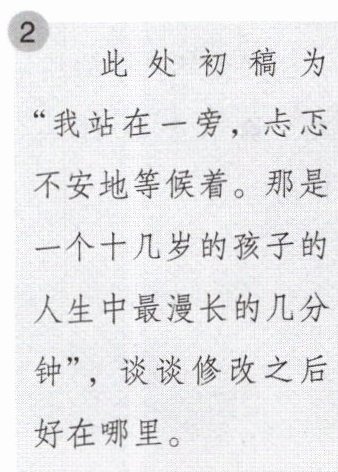 2
此处初稿为
“我站在一旁，忐忑
不安地等候着。那是
一个十几岁的孩子的
人生中最漫长的几分
钟”，谈谈修改之后
好在哪里。